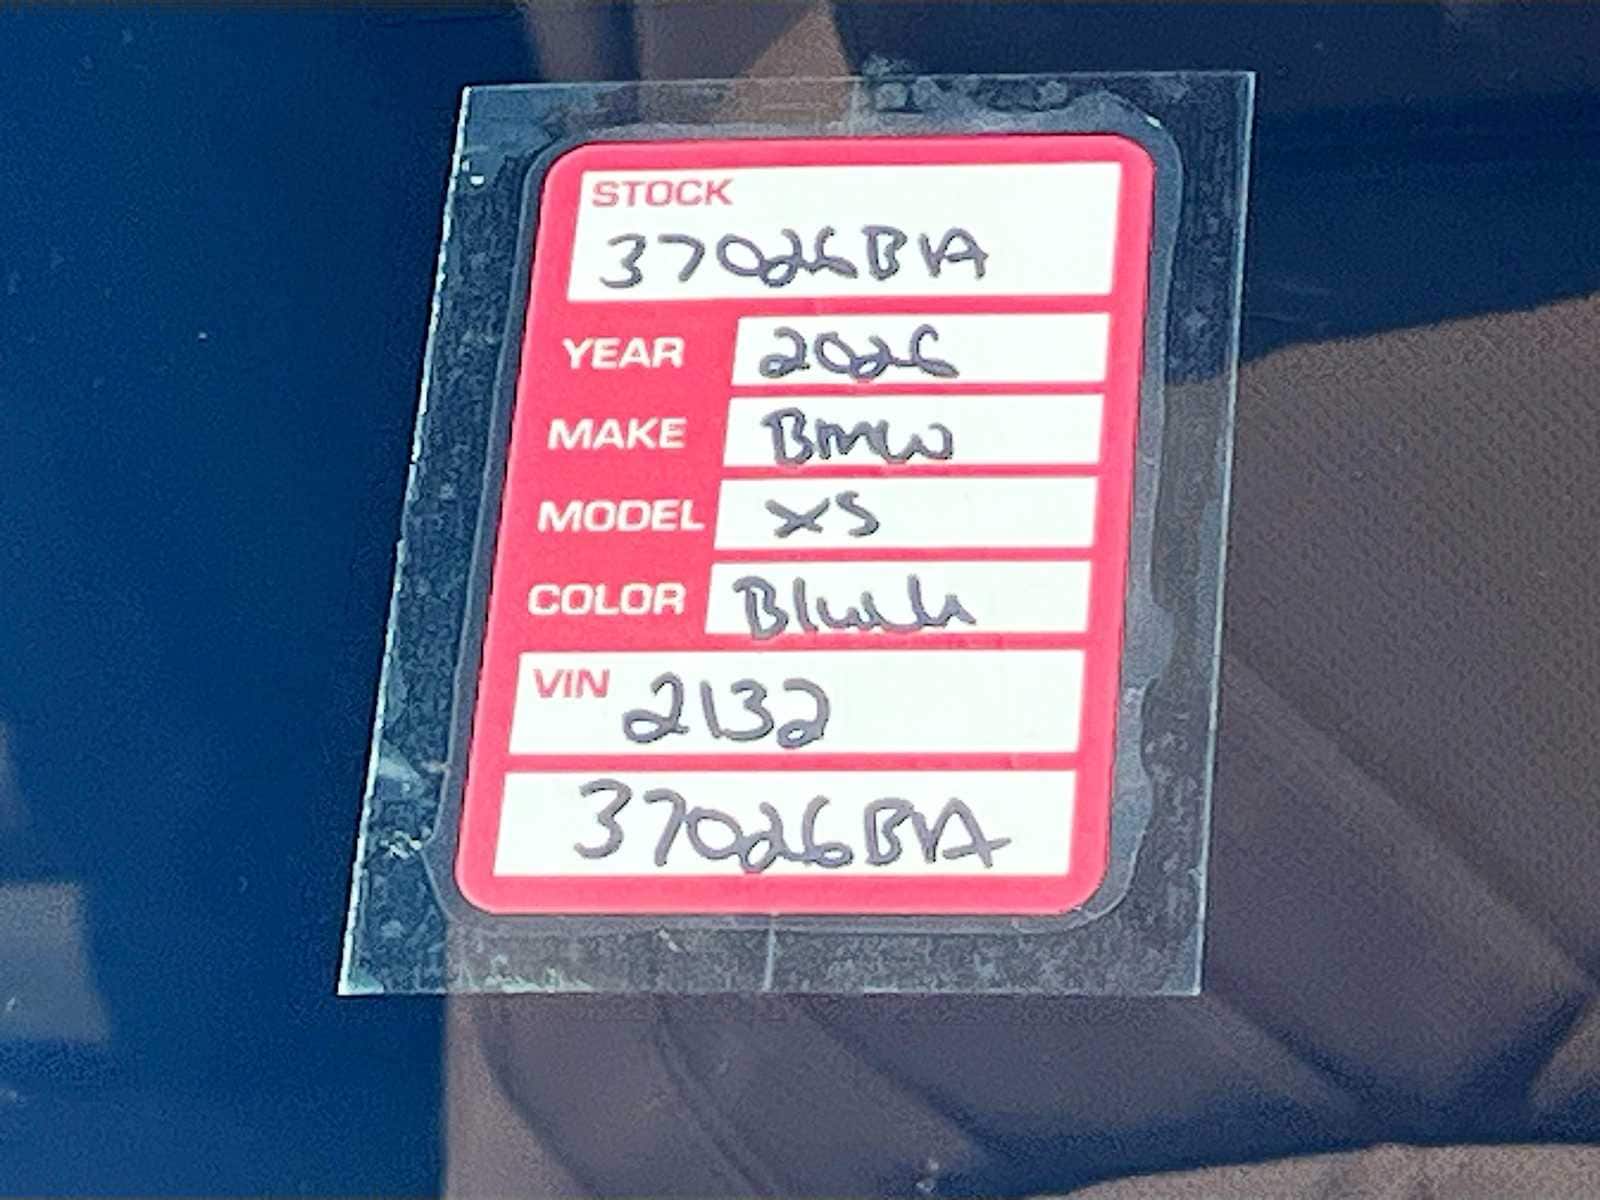 STOCK
37026B1A
YEAR 2026
MAKE BMW
MODEL X5
COLOR Black
VIN 2132
37026B1A